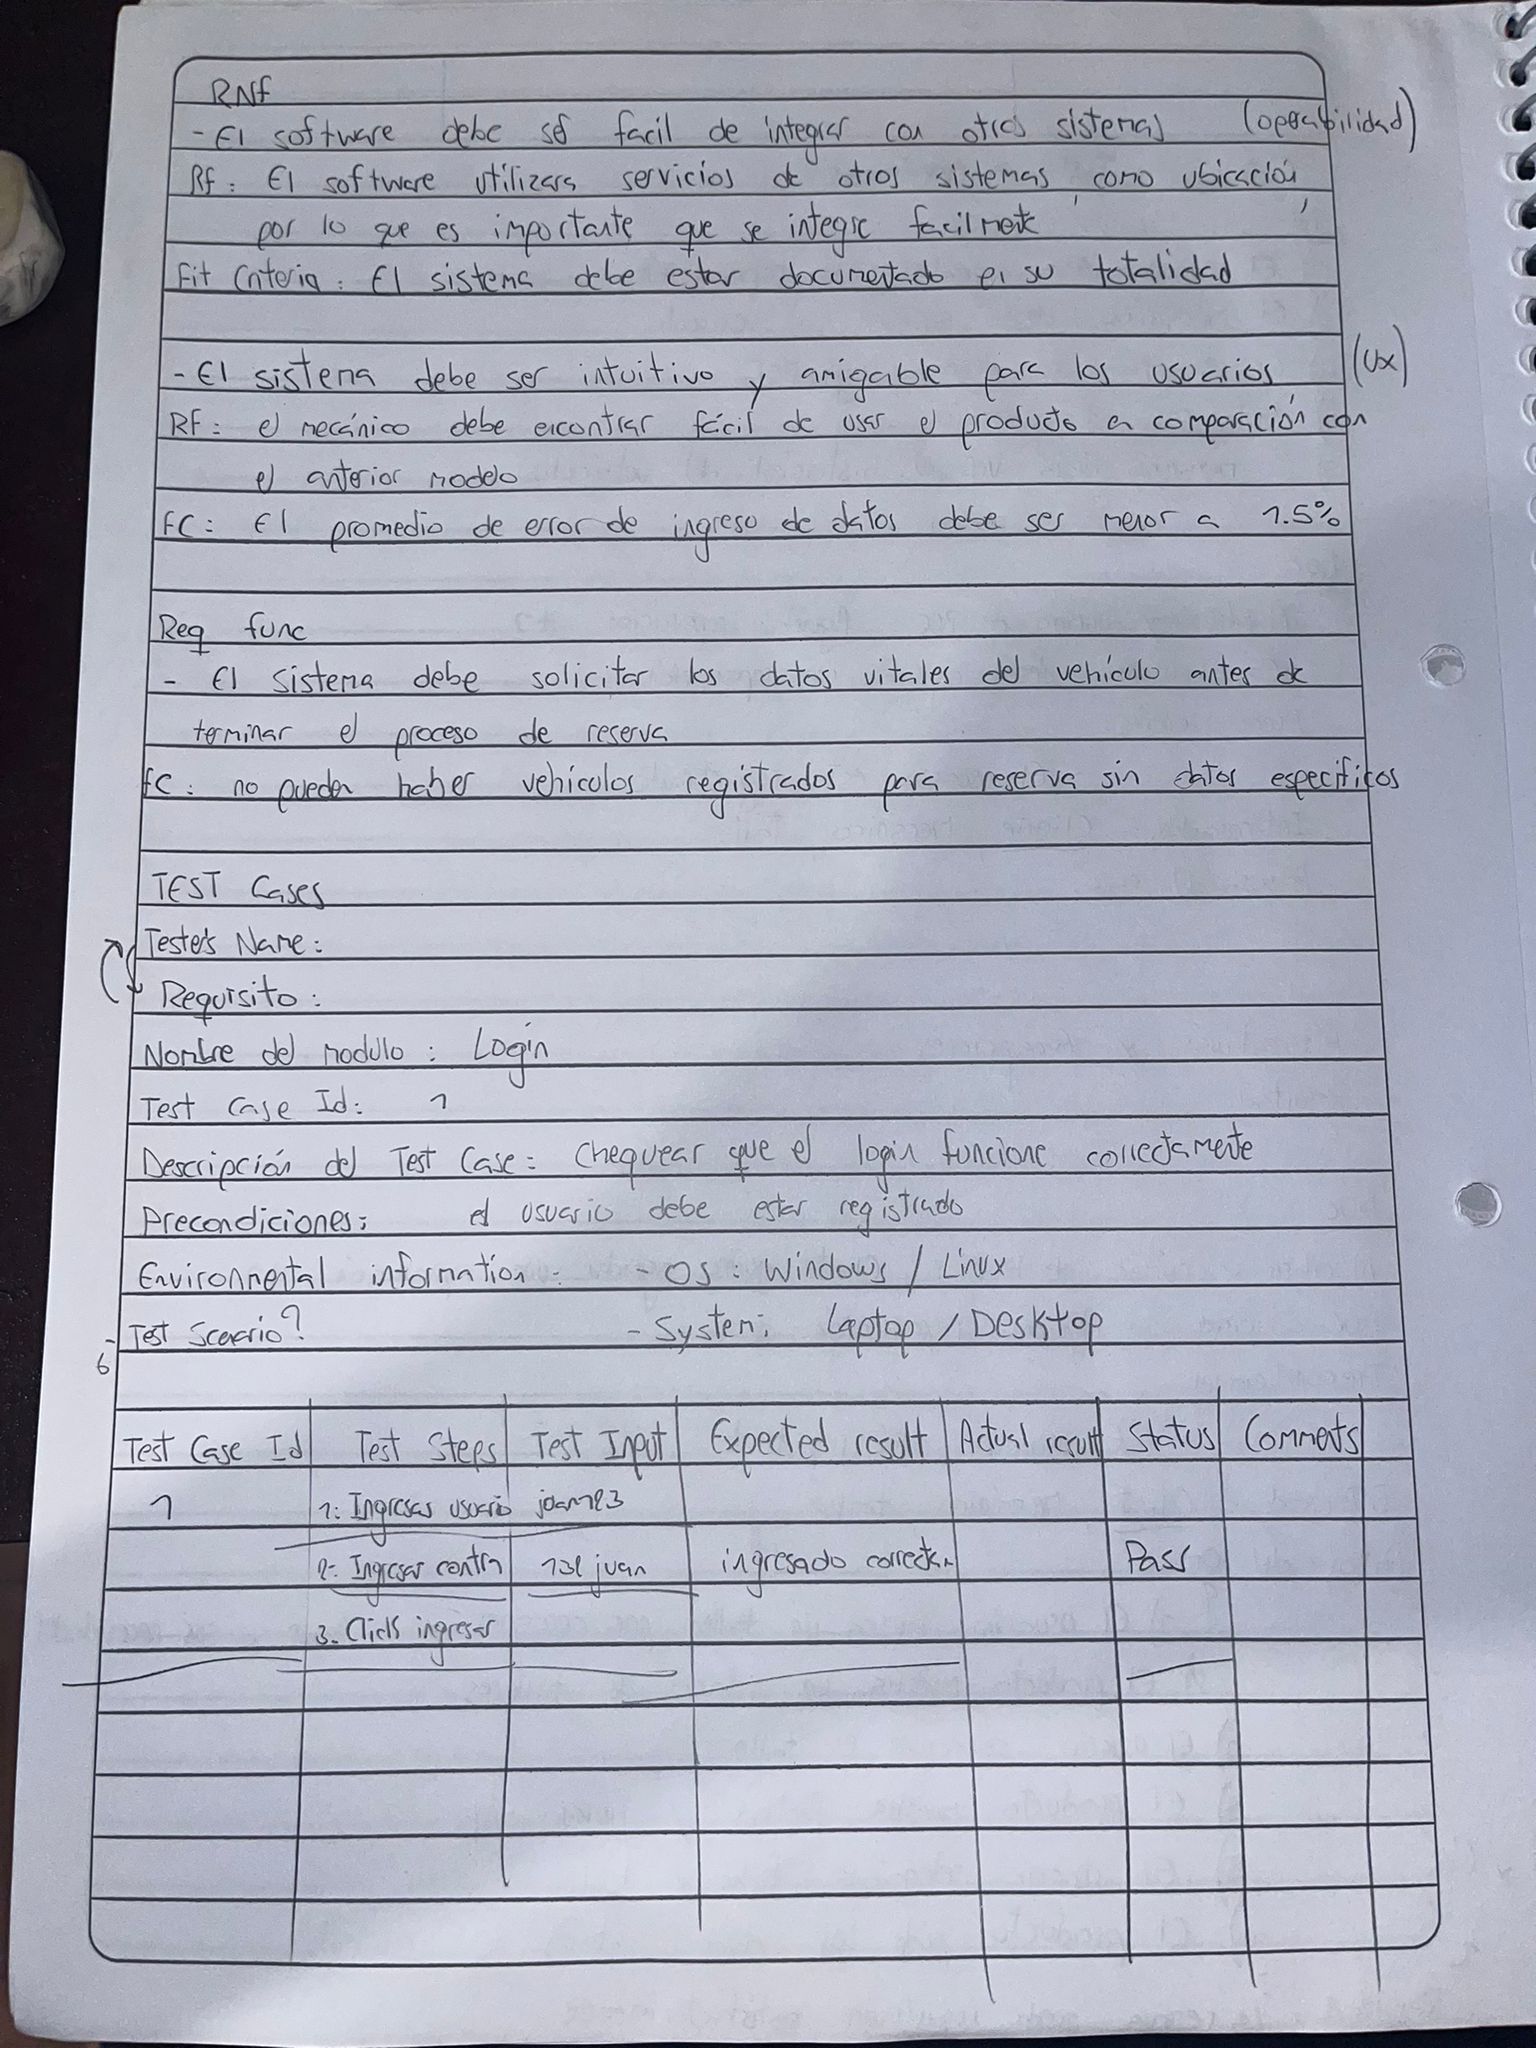 RNf
- El software debe ser facil de integrar con otros sistemas (operabilidad)
Rf: El software utilizara servicios de otros sistemas, como ubicación,
por lo que es importante que se integre facilmente
Fit Criteria: El sistema debe estar documentado en su totalidad
- El sistema debe ser intuitivo y amigable para los usuarios (Ux)
RF: el mecánico debe encontrar fácil de usar el producto en comparación con
el anterior modelo
FC: El promedio de error de ingreso de datos debe ser menor a 1.5%
Req func
- El sistema debe solicitar los datos vitales del vehículo antes de
terminar el proceso de reserva
fc: no pueden haber vehiculos registrados para reserva sin datos especificos
TEST Cases
Tester's Name:
Requisito:
Nombre del modulo: Login
Test Case Id: 1
Descripción del Test Case: Chequear que el login funcione correctamente
Precondiciones: el usuario debe estar registrado
Environmental information: - OS: Windows / Linux
- Test Scenario? - System: Laptop / Desktop
6
Test Case Id Test Steps Test Input Expected result Actual result Status Comments
1 1: Ingresar usuario joan123
2- Ingresar contra juan ingresado correctam Pass
3- Click ingresar